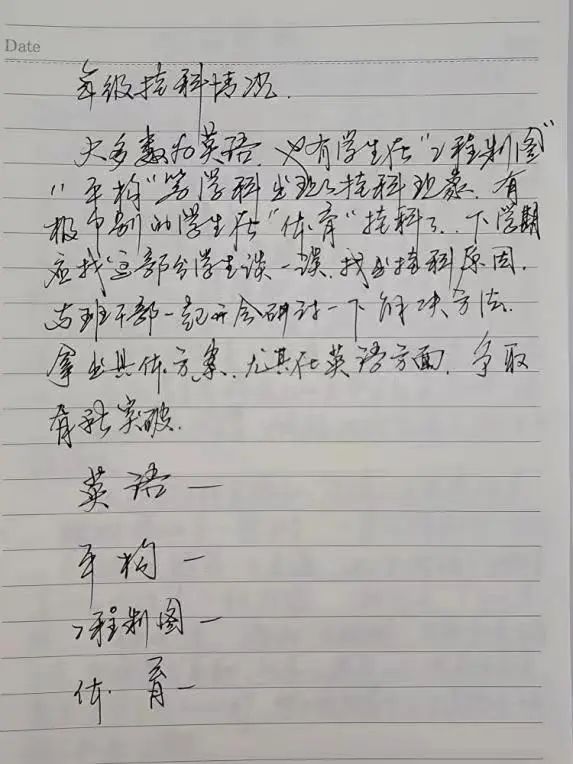 Date
年级挂科情况.
大多数为英语.也有学生在"工程制图"
"平构"等学科出现了挂科现象.有
极个别的学生在"体育"挂科了.下学期
应找这部分学生谈一谈.找出挂科原因.
与班干部一起开会研讨一下解决方法.
拿出具体方案.尤其在英语方面.争取
有所突破.
英语一
平构一
工程制图一
体育一